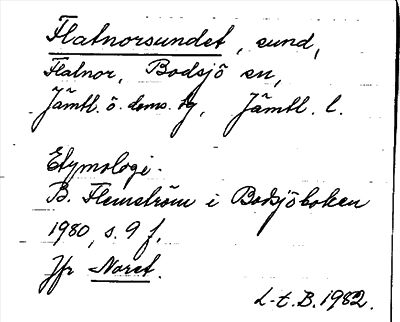 Flatnorsundet, sund,
Flatnor, Bodsjö sn,
Jämtl. ö. doms. tg, Jämtl. l.
Etymologi.
B. Flemström i Bodsjöboken
1980, s. 9 f.
Jfr Noret.
L-t. B. 1982.